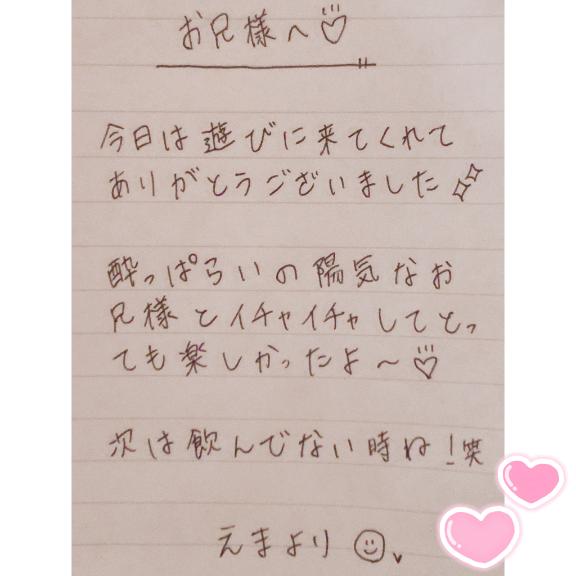 お兄様へ♡
今日は遊びに来てくれて
ありがとうございました✨
酔っぱらいの陽気なお
兄様とイチャイチャしてとっ
ても楽しかったよ〜♡
次は飲んでない時ね!笑
えまより